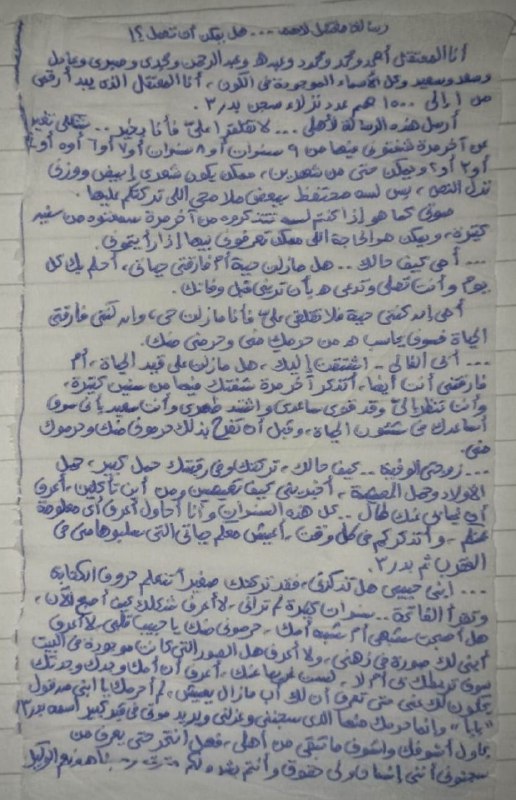 رسالة معتقل لأهله ... هل يمكن أن تصل؟!
أنا المعتقل أحمد ومحمد ومحمود وعبده وعبدالرحمن ومجدي وصبري وعادل
وسعد وسعيد وكل الأسماء الموجودة في الكون، أنا المعتقل الذي يبدأ رقمي
من 1 إلى 1500 هم عدد نزلاء سجن بدر 3.
أرسل هذه الرسالة لأهلي ... لا تقلقوا عليّ فأنا بخير .. شكلي تغير
عن آخر مرة شفتوني فيها من 9 سنوات أو 8 سنوات أو 7 أو 6 أو 5 أو 4
أو 3 أو 2 ويمكن حتى من شهرين، ممكن يكون شعري إبيض ووزني
نزل النص، بس لسه محتفظ ببعض ملامحي اللي تركتكم عليها.
صوتي كما هو إذا كنتم لسه تتذكروه من آخر مرة سمعتوه من سنين
كتيرة، ويمكن هو الحاجة اللي ممكن تعرفوني بيها إذا رأيتوني.
... أمي كيف حالك .. هل مازلتِ حية أم فارقتي حياتي، أحلم بك كل
يوم وأنت تصلي وتدعي بأن تريني قبل وفاتك.
أمي إن كنتي حية فلا تقلقي عليّ فأنا مازلت حي، وإن كنتي فارقتي
الحياة فسوف يحاسب من حرمك مني وحرمني منك.
... أبي الغالي .. اشتقت إليك، هل مازلت على قيد الحياة، أم
فارقتني أنت أيضا، أتذكر آخر مرة شفتك فيها من سنين كتيرة،
وأنت تنظر إليّ وقد قوى ساعدي واشتد ظهري وأنت سعيد بأني سوف
أساعدك في شئون الحياة، وقبل أن تفرح بذلك حرموني منك وحرموك
مني.
... زوجتي الوفية .. كيف حالك، تركتك وفي رقبتك حمل كبير، حمل
الأولاد وحمل المعيشة، أخبريني كيف تعيشين ومن أين تأكلين، أعرف
أن غيابي عنك طال .. كل هذه السنوات وأنا أحاول أعرف أي معلومة
عنكم، وأتذكركم في كل وقت، أعيش معكم حياتي التي سلبوها مني في
العقرب ثم بدر 3.
... ابني حبيبي هل تذكرني، فقد تركتك صغير أتتعلم حروف الكتابة
وتقرأ الفاتحة .. سنوات كبيرة لم تراني، لا أعرف شكلك كيف أصبح الآن،
هل أصبحت شبهي أم شبه أمك، حرموني منك يا حبيب قلبي، لا أعرف
أبني لك صورة في ذهني، ولا أعرف هل الصور التي كانت موجودة في البيت
سوف تربطك بي أم لا، لست غريبا عنك، أعرف أن أمك وجدك وجدتك
يحكون لك عني حتى تعرف أن لك أب مازال يعيش، لم أحرمك يا ابني من قول
"بابا" وإنما حرمك منها الذي سجنني وعزلني ويريد موتي في قبر كبير اسمه بدر 3
بحاول أشوفك وأشوف ما تبقى من أهلي، فهل أنتحر حتى يعرف من
سجنوني أنني إنسان ولي حقوق وأنتم